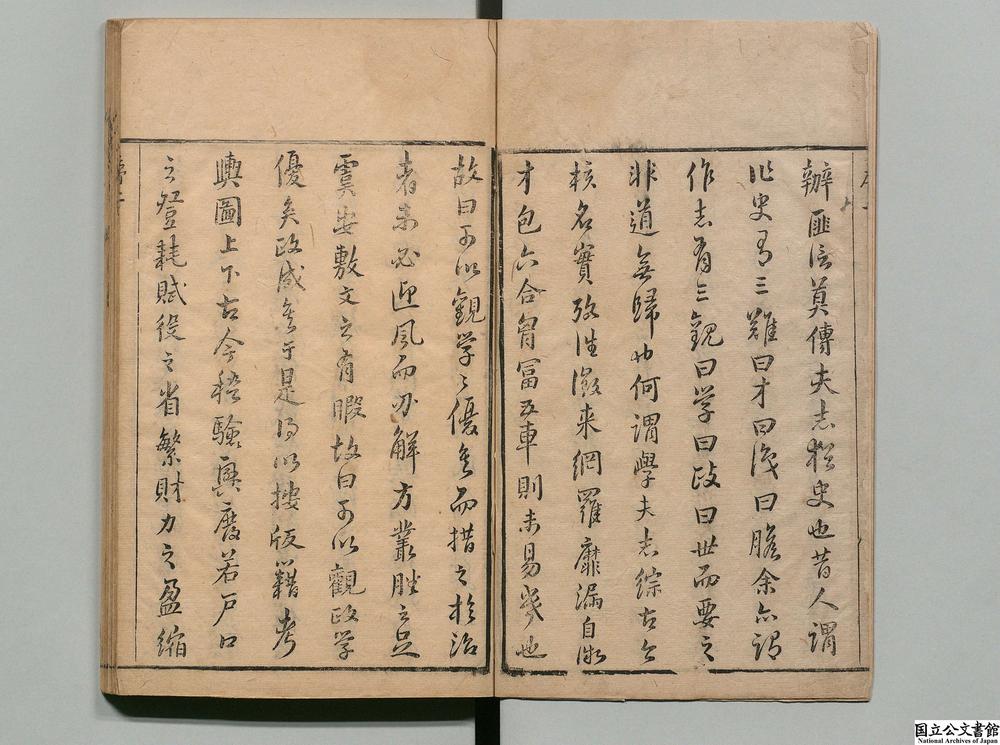 辦匪信莫傳夫志猶史也昔人謂
作史有三難曰才曰識曰膽余亦謂
作志有三觀曰学曰政曰世而要之
非道無歸也何謂學夫志綜古今
核名實攷往徵来網羅靡漏自非
才包六合胷富五車則未易幾也
故曰可以觀学学優矣而措之於治
者未必迎風而刃解方叢脞之足
虞安敷文之有暇故曰可以觀政学
優矣政成矣于是得以摟版籍考
輿圖上下古今稽驗興廢若戸口
之登耗賦役之省繁財力之盈縮
国立公文書館
National Archives of Japan